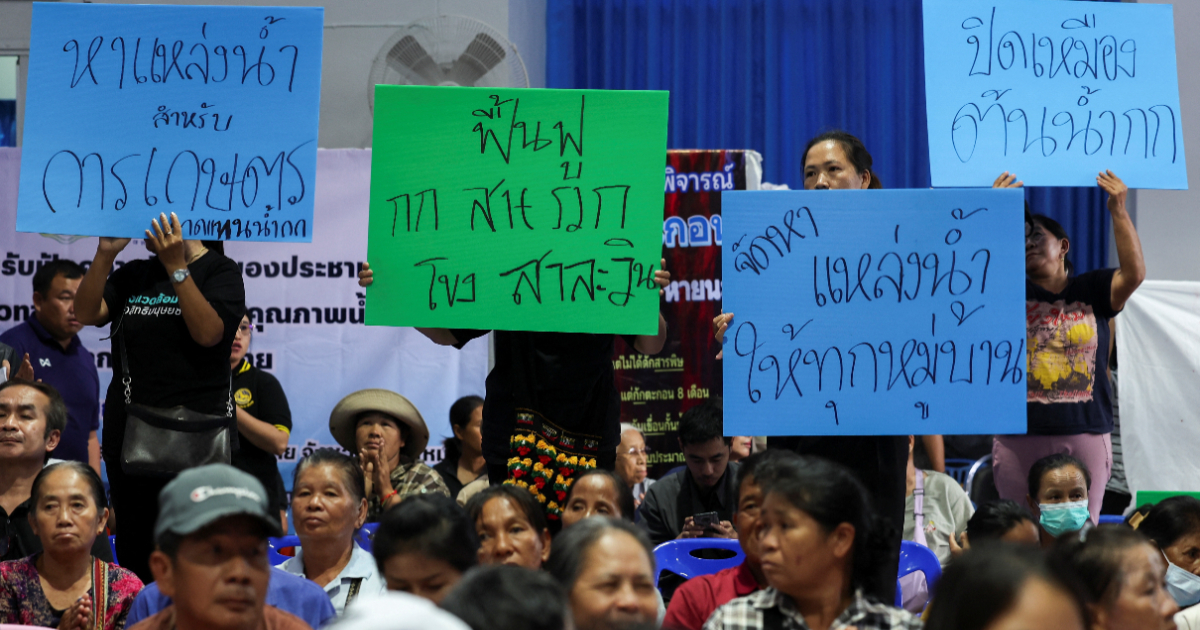 หาแหล่งน้ำ
สำหรับ
การเกษตร
ทดแทนน้ำกก
ฟื้นฟู
กก สาย รวก
โขง สาละวิน
ปิดเหมือง
ต้นน้ำกก
จัดหา
แหล่งน้ำ
ให้ทุกหมู่บ้าน
พิจารณ์
คุณภาพน้ำ
ต่ไม่ได้ดักสารพิษ
แต่กักตะกอน 8 เดือน
Champion